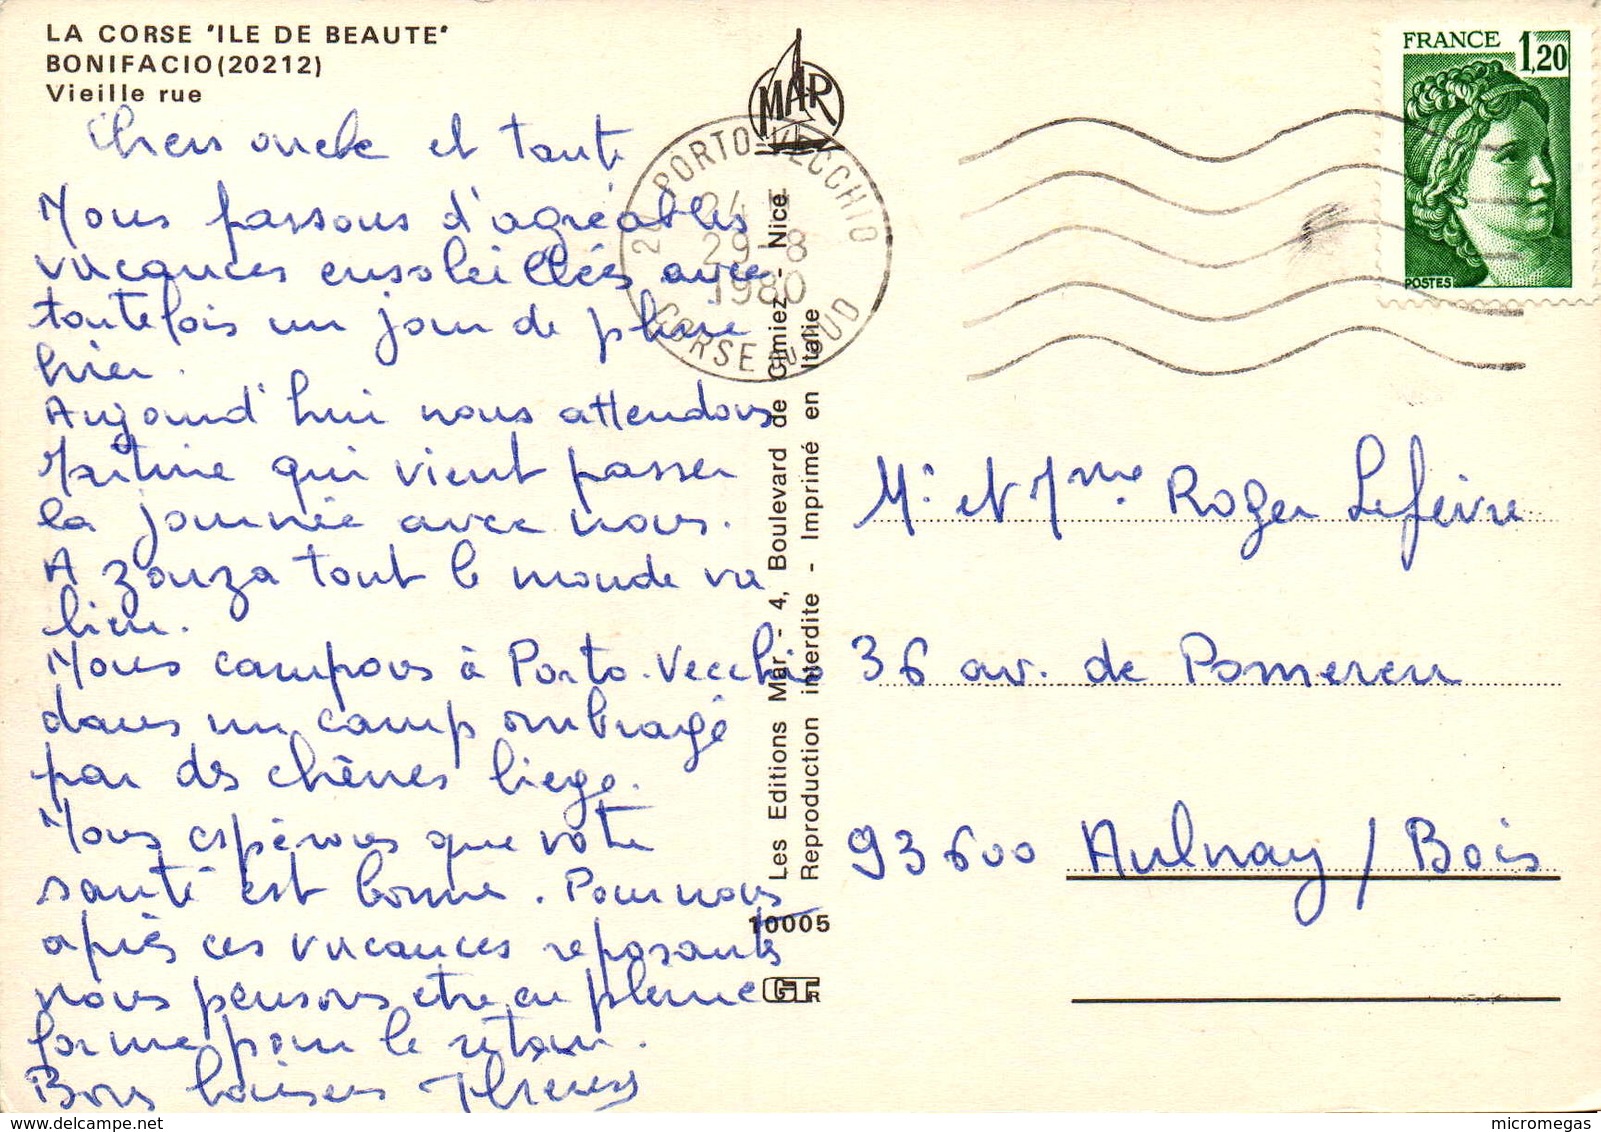 LA CORSE "ILE DE BEAUTE"
BONIFACIO (20212)
Vieille rue
Chers oncle et tante
Nous passons d'agréables
vacances ensoleillées avec
toutefois un jour de pluie
hier.
Aujourd'hui nous attendons
Martine qui vient passer
la journée avec nous.
A Zouza tout le monde va
bien.
Nous campons à Porto-Vecchio
dans un camp ombragé
par des chênes liege.
Nous espérons que votre
santé est bonne. Pour nous
après ces vacances reposantes
nous pensons être en pleine
forme pour le retour.
Bons baisers Thérèse
MAR
20 PORTO-VECCHIO
24
29-8
1980
CORSE DU SUD
Les Editions Mar - 4, Boulevard de Cimiez - Nice.
Reproduction interdite - Imprimé en Italie
10005
GTR
FRANCE 1,20
POSTES
Mr et Mme Roger Lefèvre
36 av. de Pomereu
93600 Aulnay / Bois
micromegas